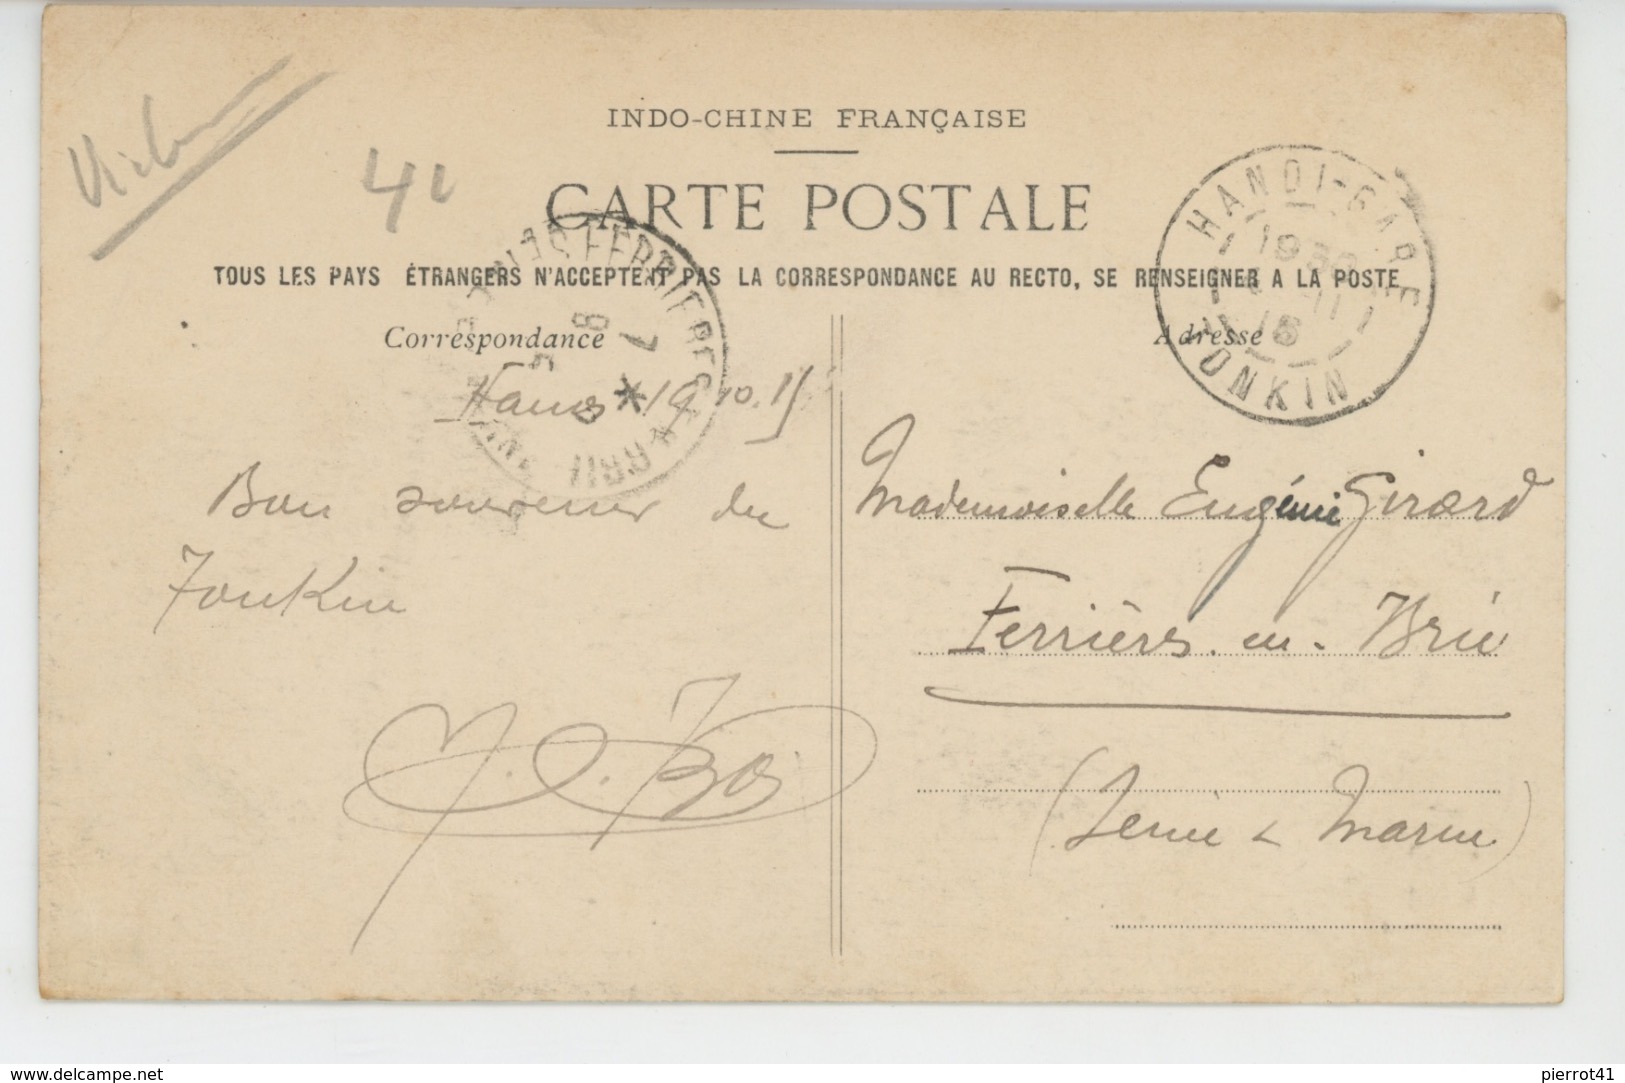 INDO-CHINE FRANÇAISE
41
CARTE POSTALE
HANOI-GARE
1930
11
16
TONKIN
TOUS LES PAYS ÉTRANGERS N'ACCEPTENT PAS LA CORRESPONDANCE AU RECTO, SE RENSEIGNER A LA POSTE
FERRIERES-EN-BRIE
Correspondance
Adresse
Hanoi 19.10.15
Bon souvenir du
Tonkin
Mademoiselle Eugénie Girard
Ferrières-en-Brie
(Seine & Marne)
www.delcampe.net
pierrot41